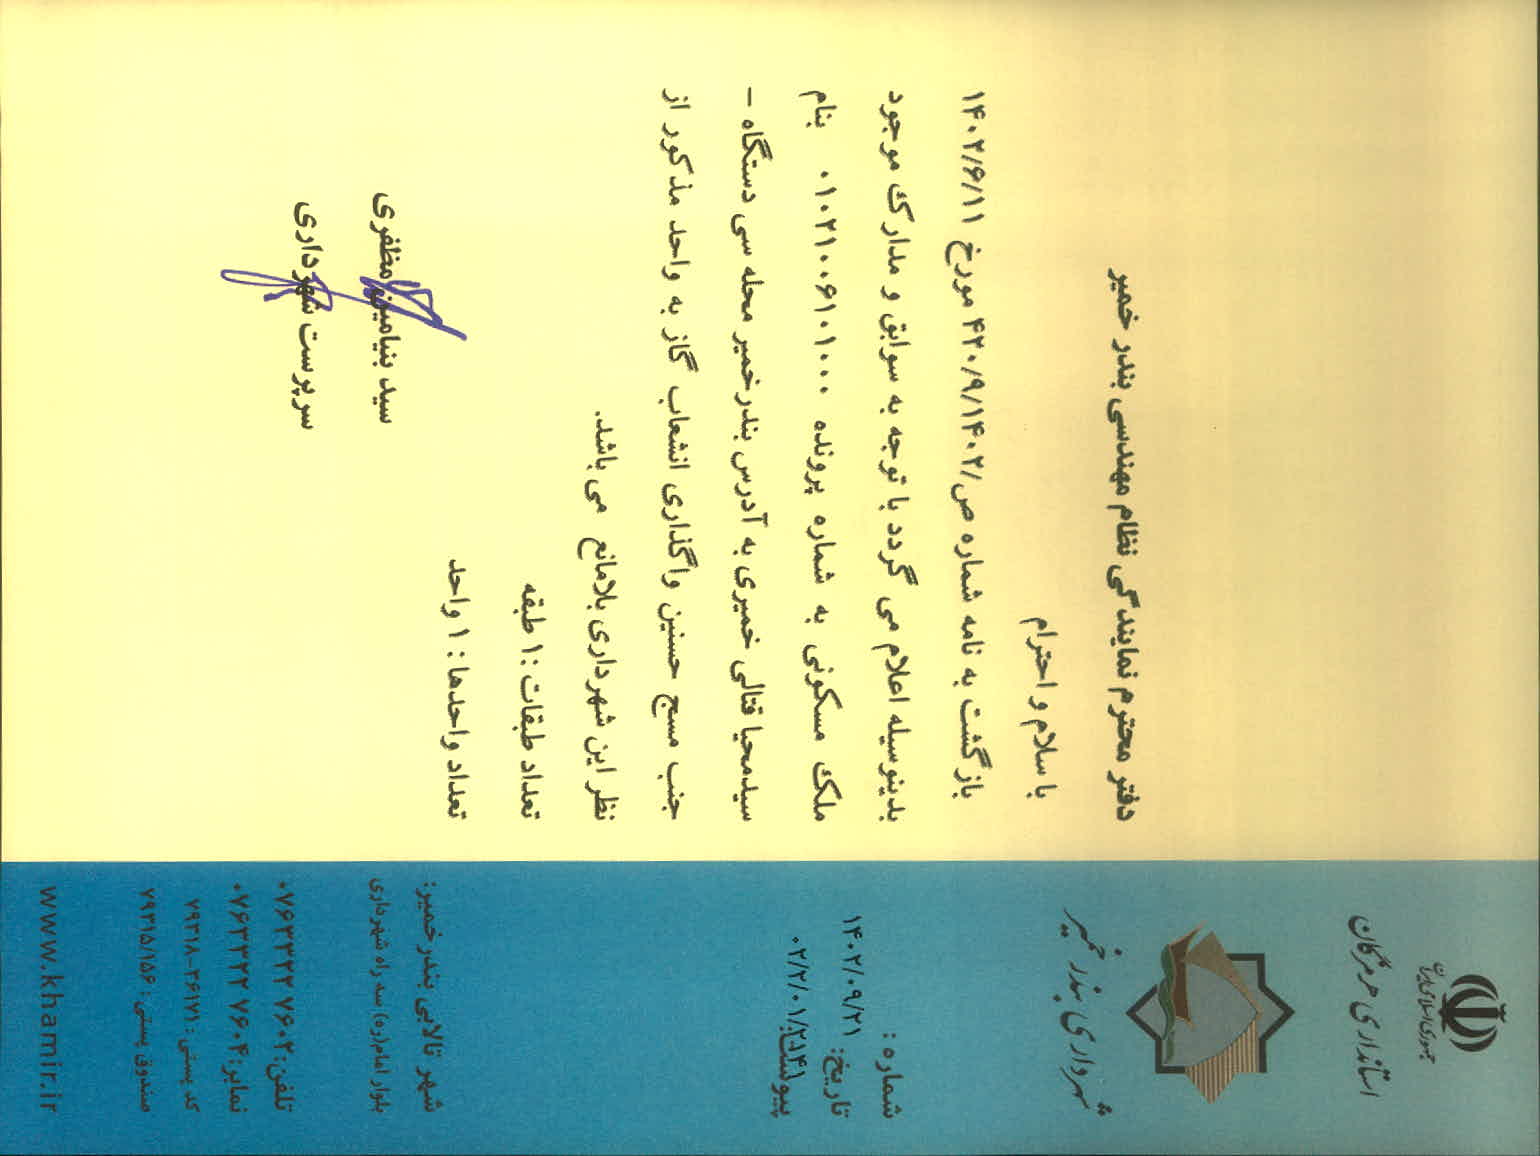 جمهوری اسلامی ایران
استانداری هرمزگان
شهرداری بندر خمیر
شماره :
تاریخ: ۱۴۰۲/۰۹/۲۱
۰۲/۲/۰۱/۲۵۴۱
پیوست:
دفتر محترم نمایندگی نظام مهندسی بندر خمیر
با سلام و احترام
بازگشت به نامه شماره ص/۴۲۰/۹/۱۴۰۲ مورخ ۱۴۰۲/۶/۱۱
بدینوسیله اعلام می گردد با توجه به سوابق و مدارک موجود
ملک مسکونی به شماره پرونده ۰۱۰۲۱۰۰۶۱۰۱۰۰۰ بنام
سیدمحیا قتالی خمیری به آدرس بندرخمیر محله سی دستگاه –
جنب مسج حسنین واگذاری انشعاب گاز به واحد مذکور از
نظر این شهرداری بلامانع می باشد.
تعداد طبقات :۱ طبقه
تعداد واحدها : ۱ واحد
سید بنیامین مظفری
سرپرست شهرداری
شهر تالابی بندر خمیر:
بلوار امام(ره) سه راه شهرداری
تلفن: ۰۷۶۳۳۲۲ ۷۶۰۲
نمابر: ۰۷۶۳۳۲۲ ۷۶۰۴
کد پستی : ۳۶۱۷۱-۷۹۳۱۸
صندوق پستی : ۷۹۳۱۵/۱۵۶
www.khamir.ir